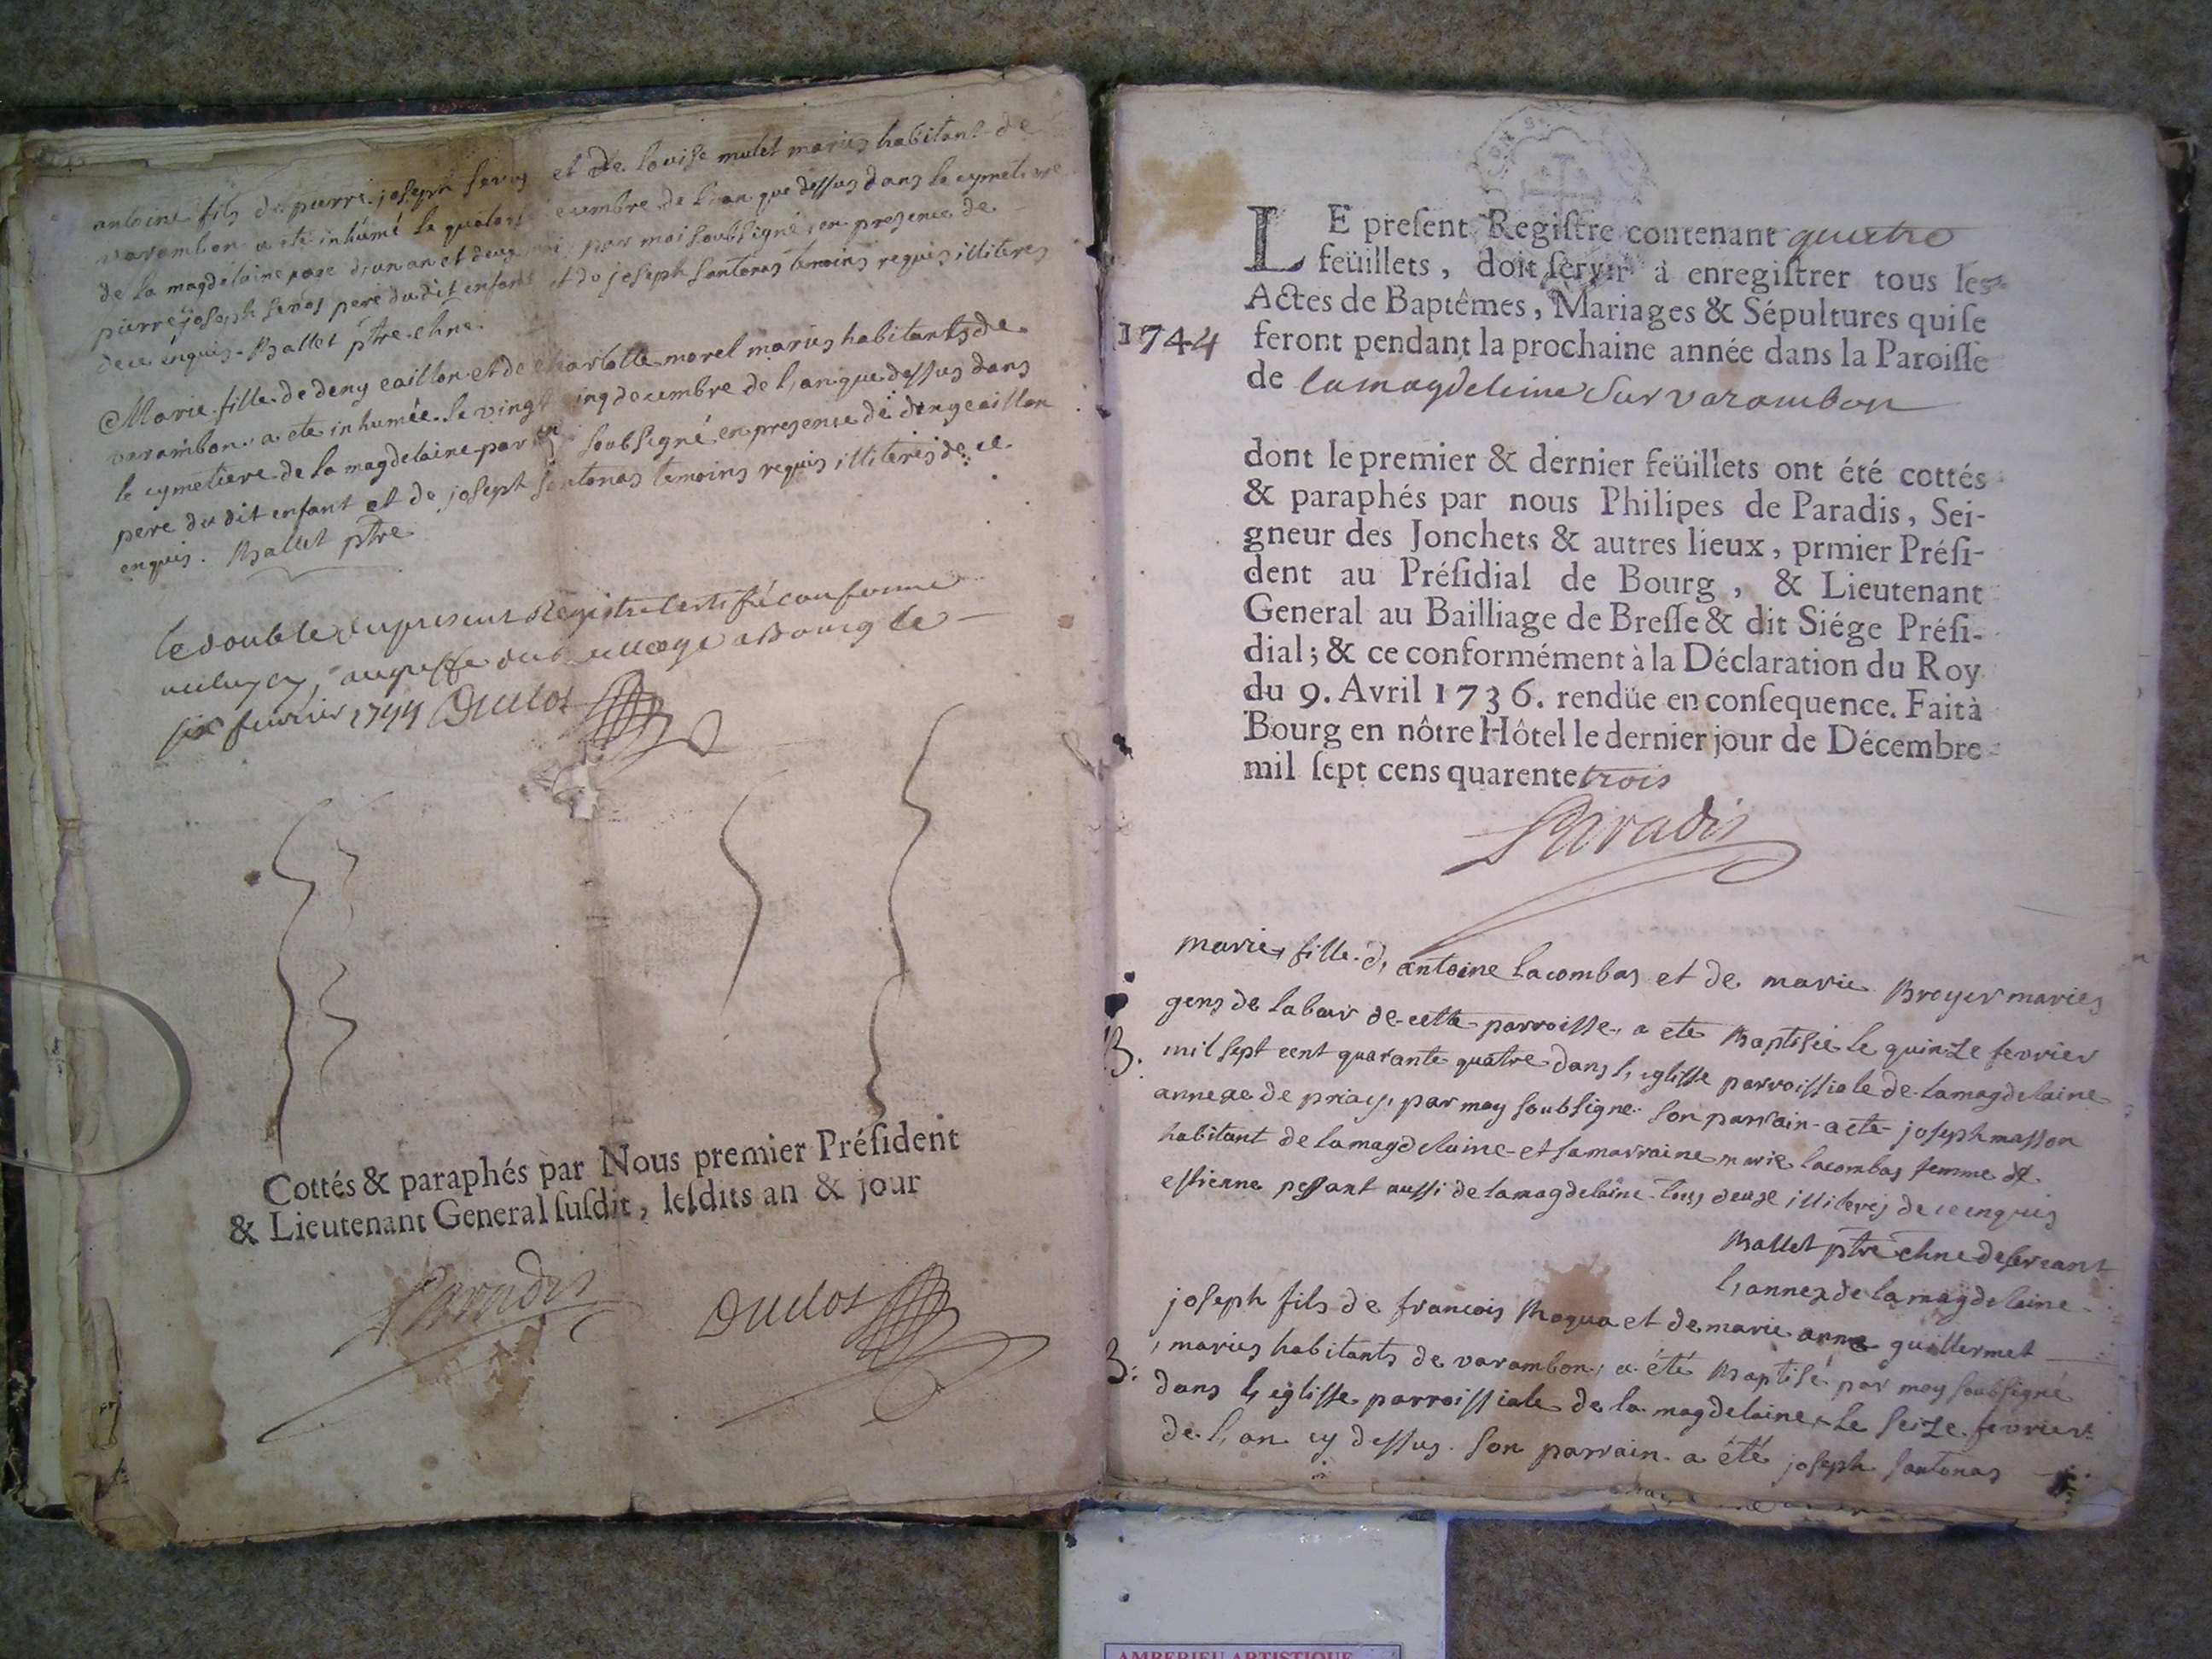 antoine fils de pierre joseph et de louise mulet maries habitant de
varambon a ete inhumé le decembre de l,an que dessus dans le cymetiere
de la magdelaine age d,un an et deux par moi soubsigné en presence de
pierre joseph pere dudit enfant et de joseph santonas temoins requis illiteres
de ce enquis. Ballet ptre chne.
Marie fille de deny caillon et de charlotte morel maries habitants de
varambon a ete inhumée le vingt cinq decembre de l,an que dessus dans
le cymetiere de la magdelaine par soubsigné en presence de deny caillon
pere du dit enfant et de joseph santonas temoins requis illiteres de ce
enquis. Ballet ptre
le double du present Registre certifié conforme
au greffe du bailliage a Bourg le
six fevrier 1744 Duclos
Cottés & paraphés par Nous premier Préſident
& Lieutenant General ſuſdit, leſdits an & jour
Paradis Duclos
LE preſent Regiſtre contenant quatre
feüillets, doit ſervir à enregiſtrer tous les
Actes de Baptêmes, Mariages & Sépultures qui ſe
1744 feront pendant la prochaine année dans la Paroiſſe
de lamagdeleine sur varambon
dont le premier & dernier feüillets ont été cottés
& paraphés par nous Philipes de Paradis, Sei-
gneur des Jonchets & autres lieux, prmier Préſi-
dent au Préſidial de Bourg, & Lieutenant
General au Bailliage de Breſſe & dit Siége Préſi-
dial; & ce conformément à la Déclaration du Roy
du 9. Avril 1736. rendüe en conſequence. Fait à
Bourg en nôtre Hôtel le dernier jour de Décembre
mil ſept cens quarente trois
Paradis
marie fille d, antoine lacombas et de marie Broyer maries
gens de labeur de cette parroisse a ete Baptisée le quinze fevrier
B. mil sept cent quarante quatre dans l, eglisse parroissiale de lamagdelaine
annexe de priay, par moy soubsigne son parrain a ete joseph masson
habitant de lamagdelaine et sa marraine marie lacombas femme de
estienne pessant aussi de lamagdelaine tous deux illiteres de ce enquis
Ballet ptre chne deservant
l, annexe de la magdelaine
joseph fils de francois Moqua et de marie anne guillermet
maries habitants de varambon, a été Baptisé par moy soubsigné
B. dans l, eglisse parroissiale de la magdelaine le seize fevrier
de l, an cy dessus. son parrain a été joseph santonas
AMBERIEU ARTISTIQUE